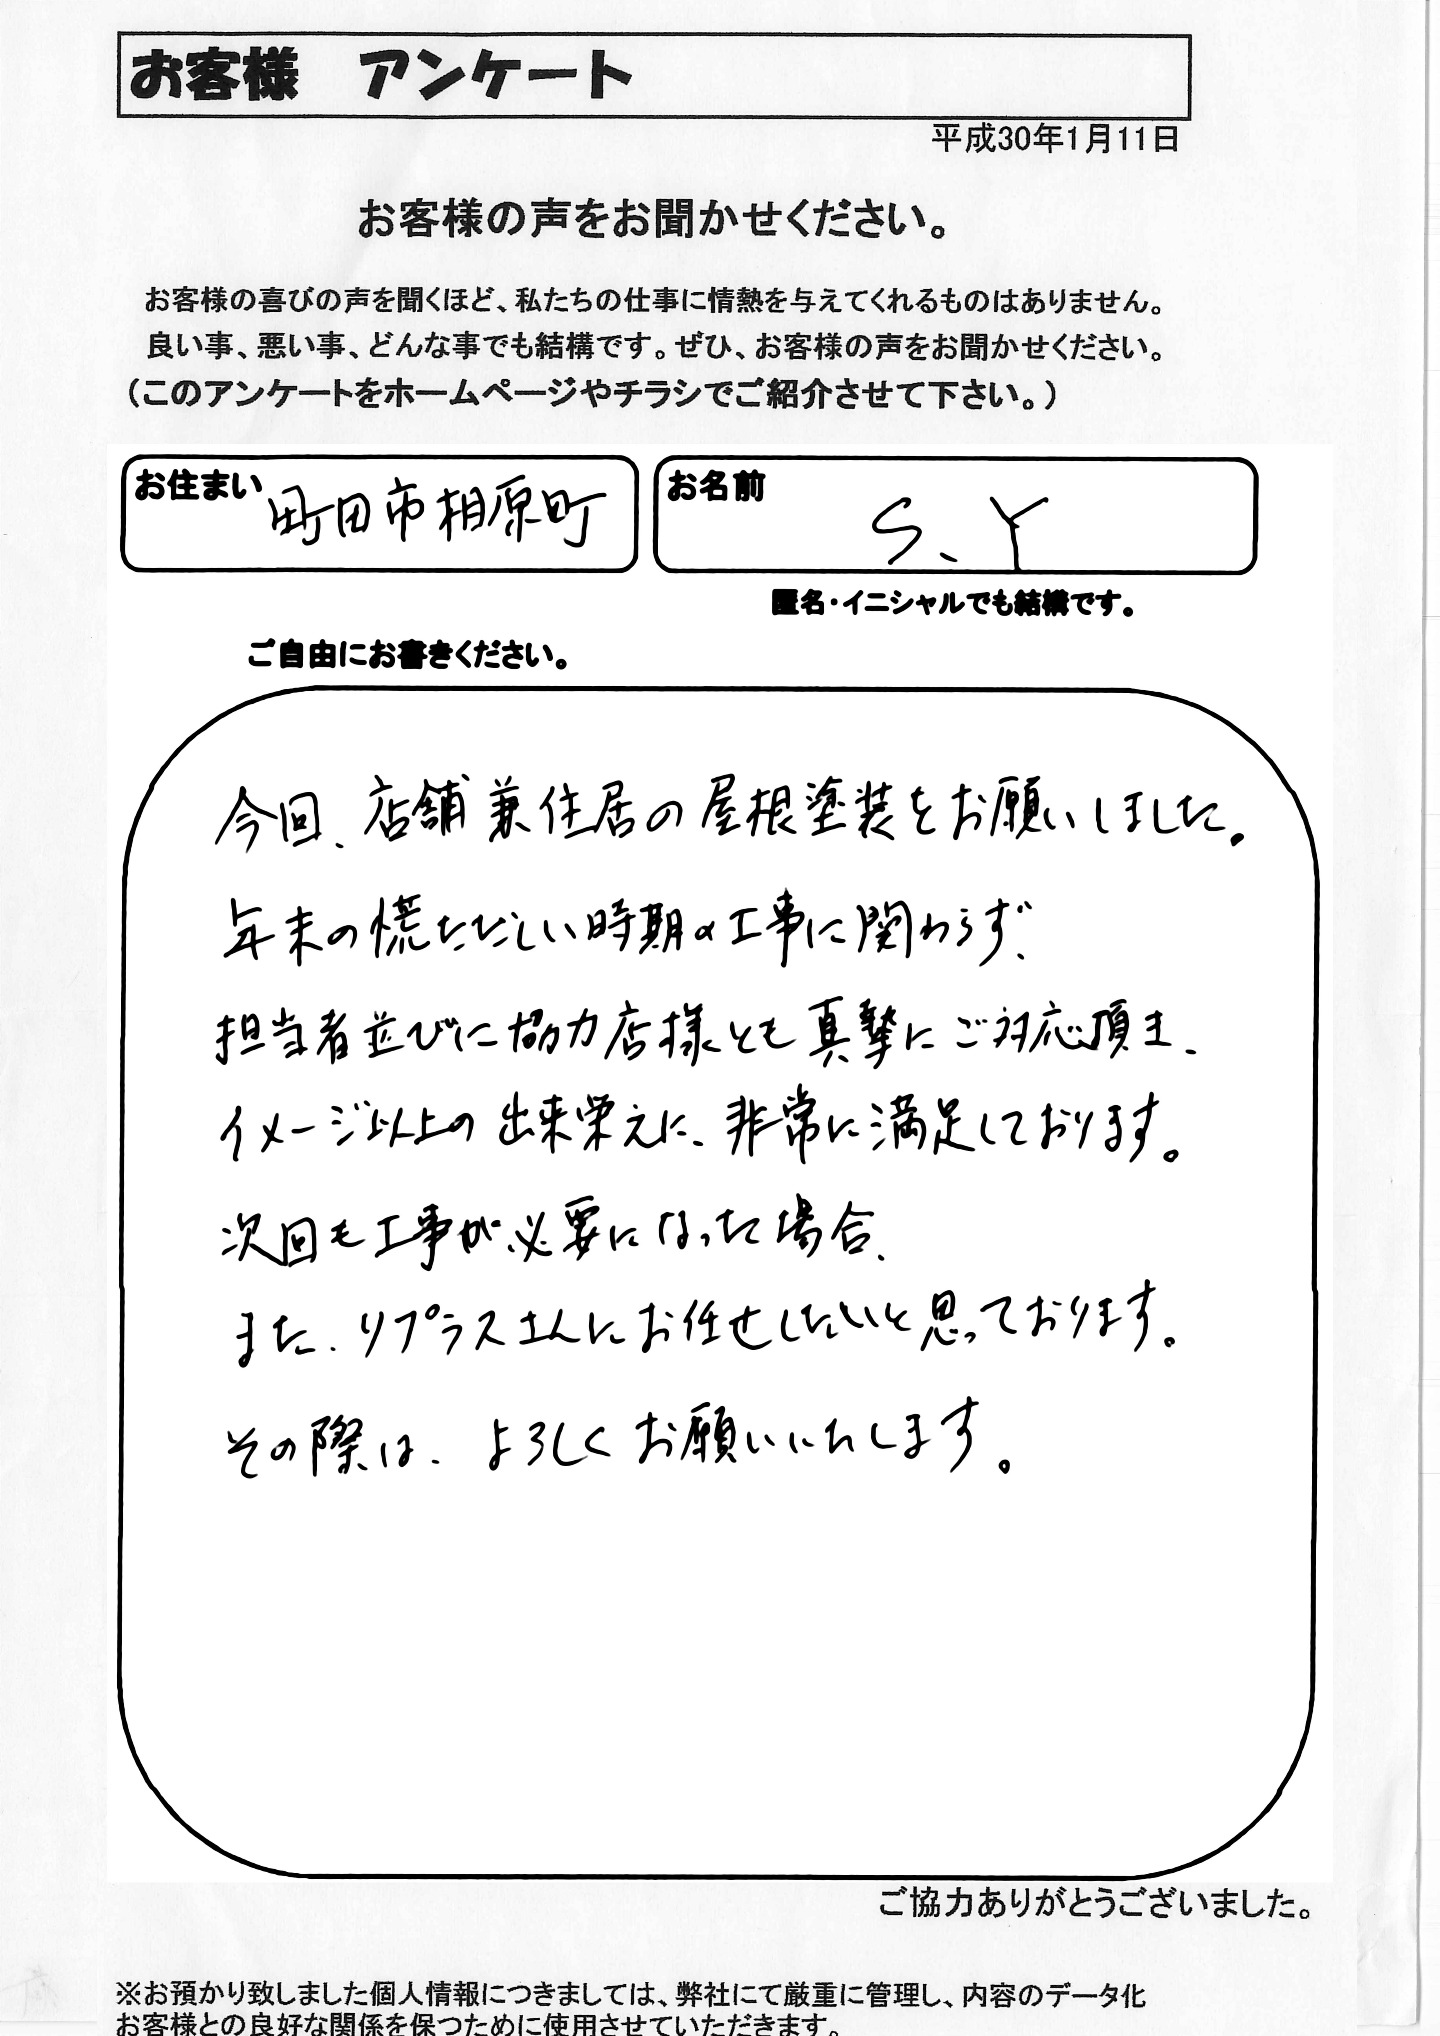 お客様 アンケート
平成30年1月11日
お客様の声をお聞かせください。
お客様の喜びの声を聞くほど、私たちの仕事に情熱を与えてくれるものはありません。
良い事、悪い事、どんな事でも結構です。ぜひ、お客様の声をお聞かせください。
（このアンケートをホームページやチラシでご紹介させて下さい。）
お住まい 町田市相原町
お名前 S、Y
匿名・イニシャルでも結構です。
ご自由にお書きください。
今回、店舗兼住居の屋根塗装をお願いしました。
年末の慌ただしい時期の工事に関わらず、
担当者並びに協力店様とも真摯にご対応頂き、
イメージ以上の出来栄えに、非常に満足しております。
次回も工事が必要になった場合、
また、リプラスさんにお任せしたいと思っております。
その際は、よろしくお願いいたします。
ご協力ありがとうございました。
※お預かり致しました個人情報につきましては、弊社にて厳重に管理し、内容のデータ化
お客様との良好な関係を保つために使用させていただきます。